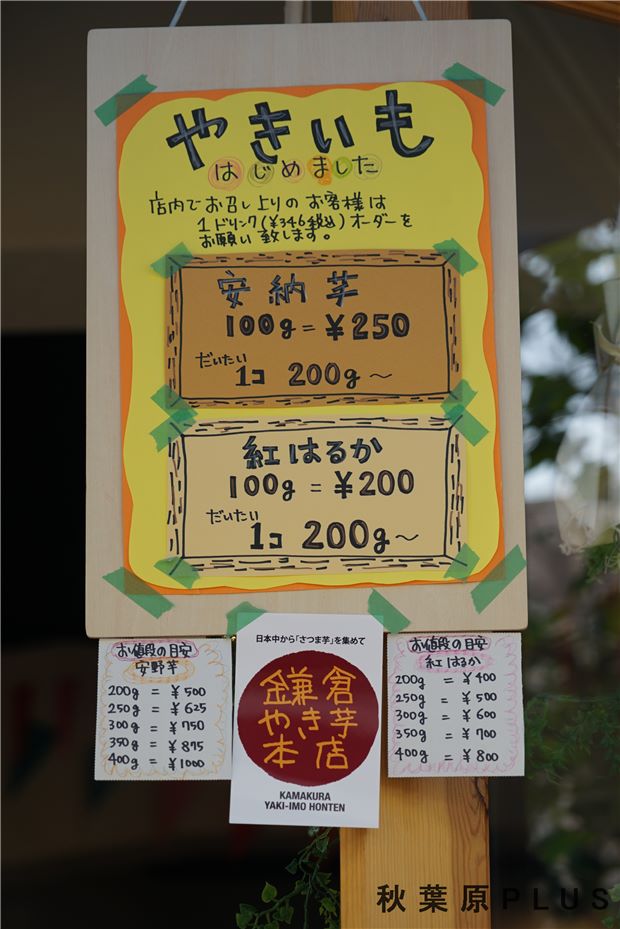 やきいも
はじめました
店内でお召し上りのお客様は
1ドリンク(¥346税込)オーダーを
お願い致します。
安納芋
100g=¥250
だいたい
1コ 200g〜
紅はるか
100g=¥200
だいたい
1コ 200g〜
お値段の目安
安野芋
200g = ¥500
250g = ¥625
300g = ¥750
350g = ¥875
400g = ¥1000
日本中から「さつま芋」を集めて
鎌倉
やき芋
本店
KAMAKURA
YAKI-IMO HONTEN
お値段の目安
紅はるか
200g = ¥400
250g = ¥500
300g = ¥600
350g = ¥700
400g = ¥800
秋葉原PLUS